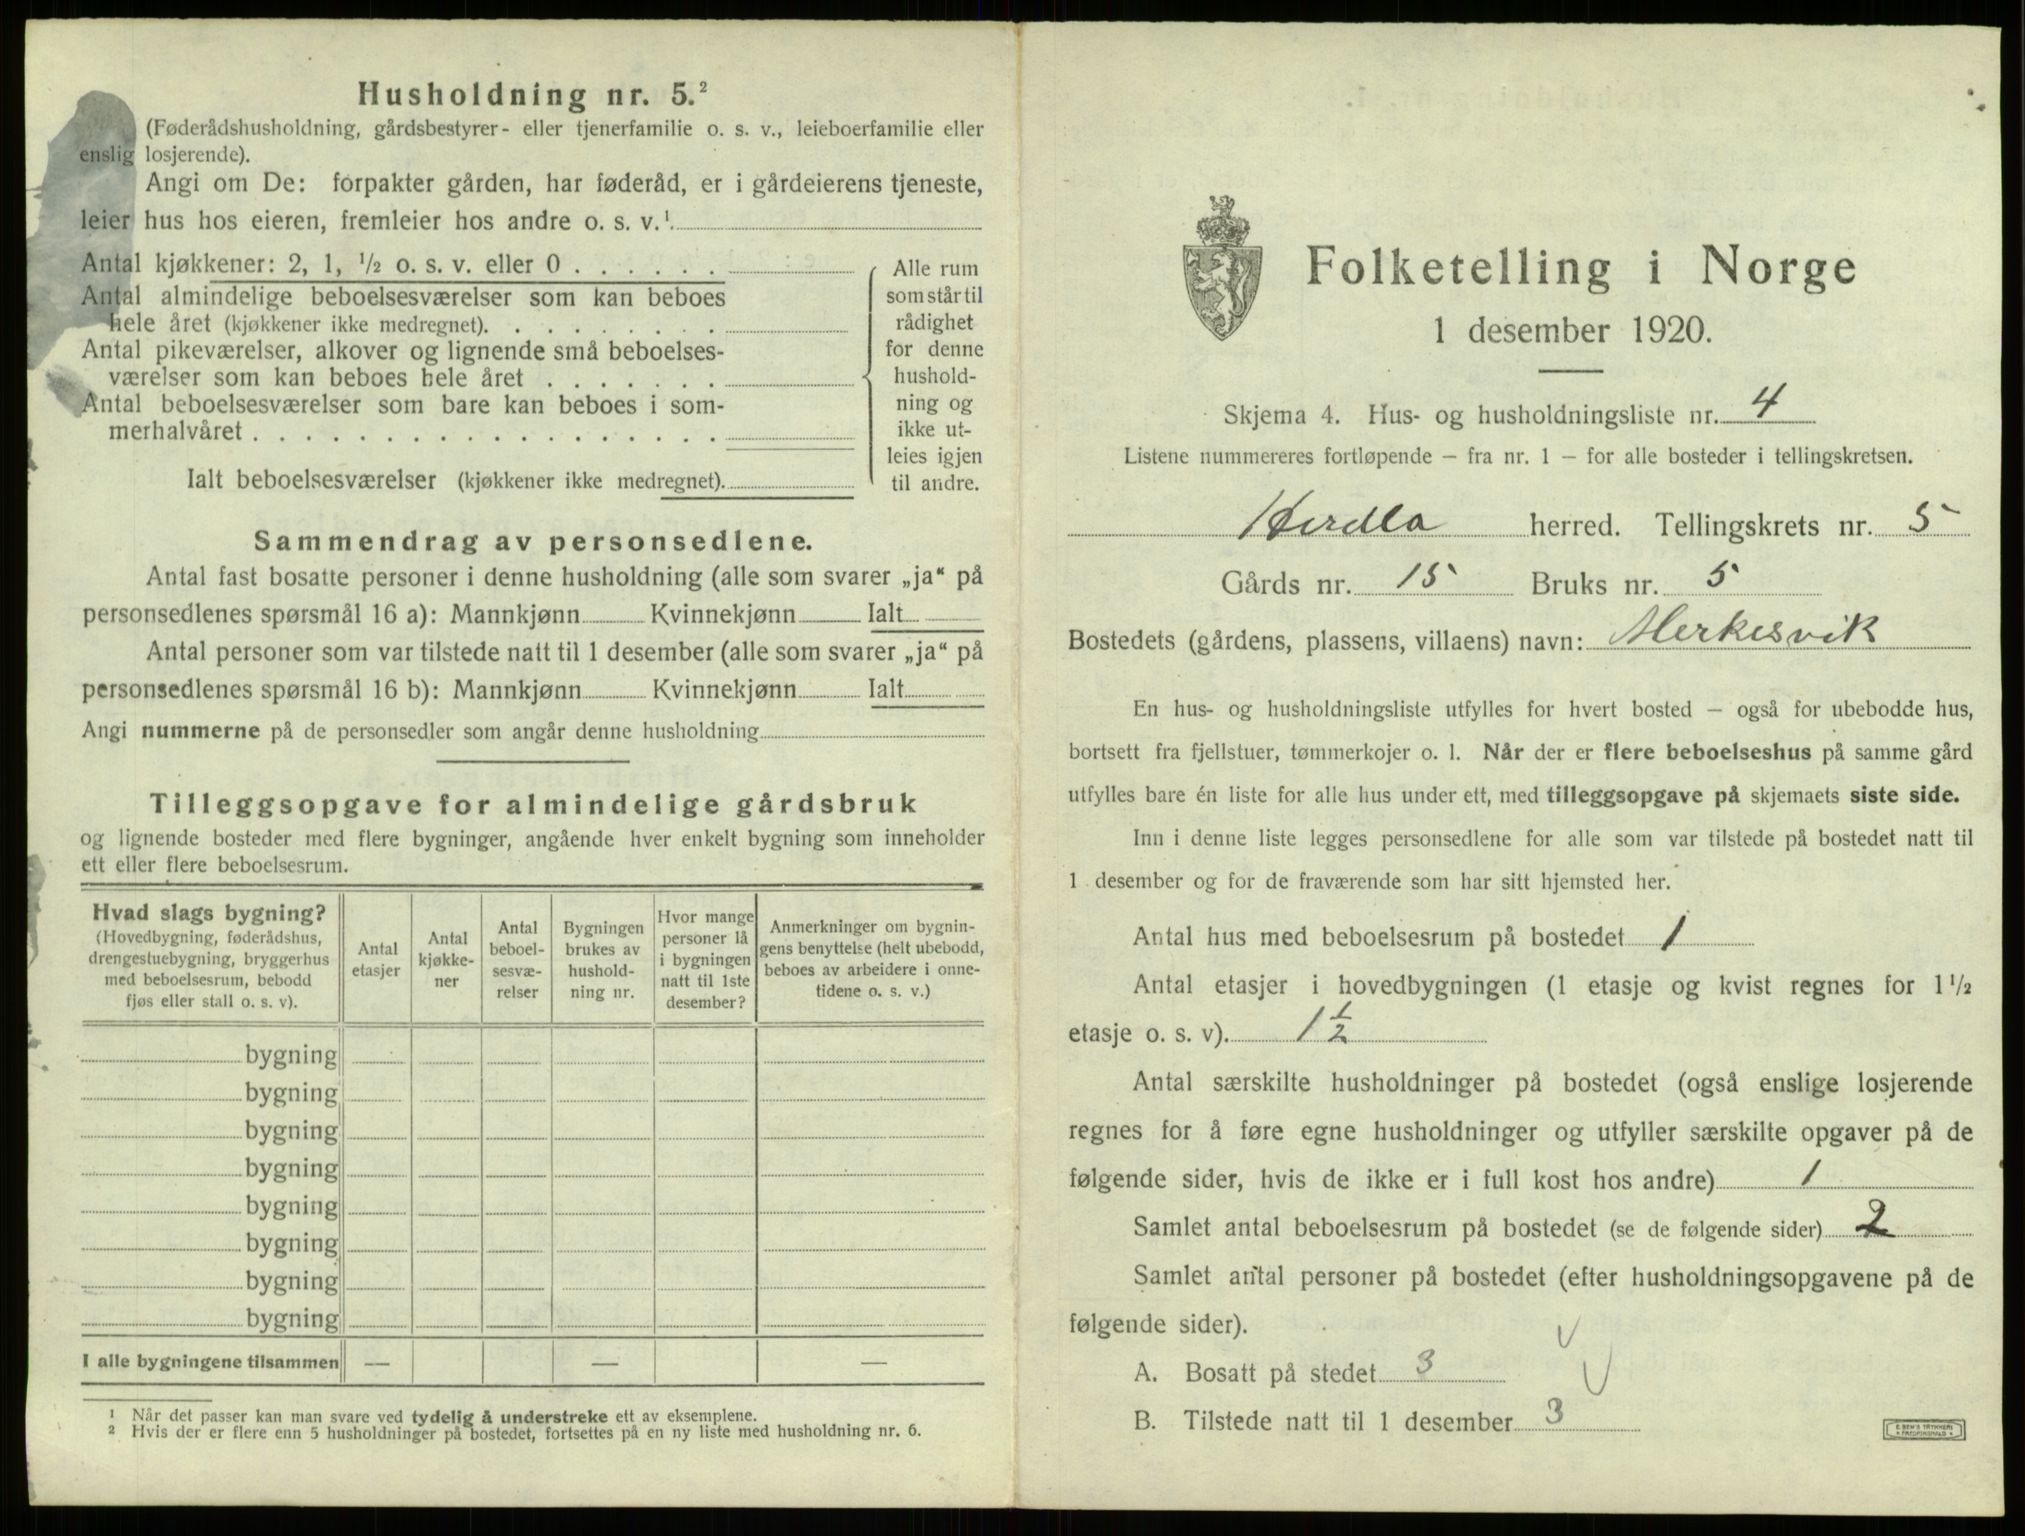 Husholdning nr. 5.²
(Føderådshusholdning, gårdsbestyrer- eller tjenerfamilie o. s. v., leieboerfamilie eller
enslig losjerende).
Angi om De: forpakter gården, har føderåd, er i gårdeierens tjeneste,
leier hus hos eieren, fremleier hos andre o. s. v.¹
Antal kjøkkener: 2, 1, ½ o. s. v. eller 0 . . . . . .
Antal almindelige beboelsesværelser som kan beboes
hele året (kjøkkener ikke medregnet). . . . . . . . .
Antal pikeværelser, alkover og lignende små beboelses-
værelser som kan beboes hele året . . . . . . .
Antal beboelsesværelser som bare kan beboes i som-
merhalvåret . . . . . . . . . . . . . . . . . .
Ialt beboelsesværelser (kjøkkener ikke medregnet).
Alle rum
som står til
rådighet
for denne
hushold-
ning og
ikke ut-
leies igjen
til andre.
Sammendrag av personsedlene.
Antal fast bosatte personer i denne husholdning (alle som svarer „ja“ på
personsedlenes spørsmål 16 a): Mannkjønn Kvinnekjønn Ialt
Antal personer som var tilstede natt til 1 desember (alle som svarer „ja“ på
personsedlenes spørsmål 16 b): Mannkjønn Kvinnekjønn Ialt
Angi nummerne på de personsedler som angår denne husholdning
Tilleggsopgave for almindelige gårdsbruk
og lignende bosteder med flere bygninger, angående hver enkelt bygning som inneholder
ett eller flere beboelsesrum.
Hvad slags bygning?
(Hovedbygning, føderådshus,
drengestuebygning, bryggerhus
med beboelsesrum, bebodd
fjøs eller stall o. s. v).
Antal
etasjer
Antal
kjøkke-
ner
Antal
beboel-
sesvæ-
relser
Bygningen
brukes av
hushold-
ning nr.
Hvor mange
personer lå
i bygningen
natt til 1ste
desember?
Anmerkninger om bygnin-
gens benyttelse (helt ubebodd,
beboes av arbeidere i onne-
tidene o. s. v.)
bygning
bygning
bygning
bygning
bygning
bygning
bygning
bygning
I alle bygningene tilsammen — — —
¹ Når det passer kan man svare ved tydelig å understreke ett av eksemplene.
² Hvis der er flere enn 5 husholdninger på bostedet, fortsettes på en ny liste med husholdning nr. 6.
Folketelling i Norge
1 desember 1920.
Skjema 4. Hus- og husholdningsliste nr. 4
Listene nummereres fortløpende – fra nr. 1 – for alle bosteder i tellingskretsen.
Herdla herred. Tellingskrets nr. 5
Gårds nr. 15 Bruks nr. 5
Bostedets (gårdens, plassens, villaens) navn: Merkesvik
En hus- og husholdningsliste utfylles for hvert bosted – også for ubebodde hus,
bortsett fra fjellstuer, tømmerkojer o. l. Når der er flere beboelseshus på samme gård
utfylles bare én liste for alle hus under ett, med tilleggsopgave på skjemaets siste side.
Inn i denne liste legges personsedlene for alle som var tilstede på bostedet natt til
1 desember og for de fraværende som har sitt hjemsted her.
Antal hus med beboelsesrum på bostedet 1
Antal etasjer i hovedbygningen (1 etasje og kvist regnes for 1 ½
etasje o. s. v). 1 ½
Antal særskilte husholdninger på bostedet (også enslige losjerende
regnes for å føre egne husholdninger og utfyller særskilte opgaver på de
følgende sider, hvis de ikke er i full kost hos andre) 1
Samlet antal beboelsesrum på bostedet (se de følgende sider) 2
Samlet antal personer på bostedet (efter husholdningsopgavene på de
følgende sider).
A. Bosatt på stedet 3
B. Tilstede natt til 1 desember 3
E. SEM'S TRYKKERI
FREDRIKSHALD